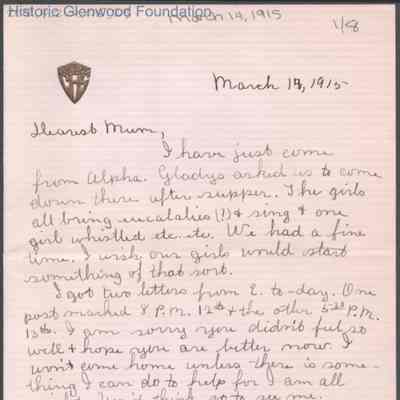 Historic Glenwood Foundation
March 14, 1915
1/8
March 14, 1915
Dearest Mum,
I have just come
from Alpha. Gladys asked us to come
down there after supper. The girls
all bring eucalalies (?) & sing & one
girl whistled etc. etc. We had a fine
time. I wish our girls would start
something of that sort.
I got two letters from E. to-day. One
post marked 8 P.M. 12th & the other 5 P.M.
13th. I am sorry you didn't feel so
well & hope you are better now. I
won't come home unless there is some-
thing I can do to help for I am all
think so to see me.